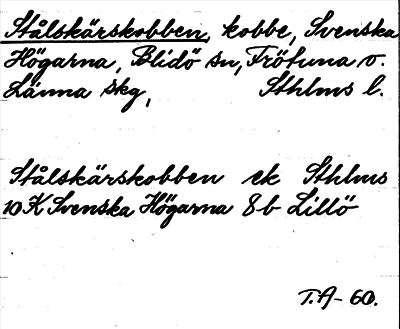 Stålskärskobben, kobbe, Svenska
Högarna, Blidö sn, Frötuna o.
Länna skg, Sthlms l.
Stålskärskobben ek Sthlms
10K Svenska Högarna 8b Lillö
T.A-60.